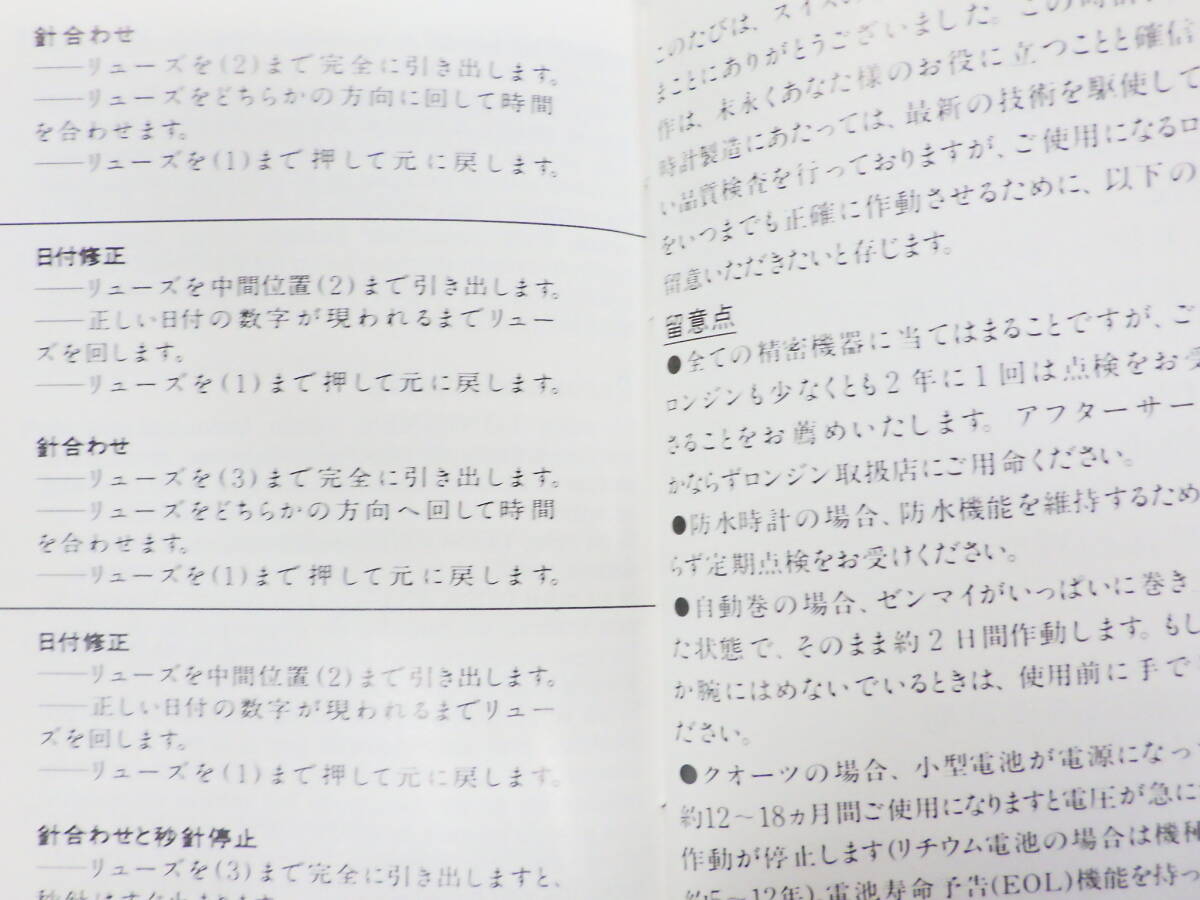 針合わせ
——リューズを(2)まで完全に引き出します。
——リューズをどちらかの方向に回して時間
を合わせます。
——リューズを(1)まで押して元に戻します。
日付修正
——リューズを中間位置(2)まで引き出します。
——正しい日付の数字が現われるまでリュー
ズを回します。
——リューズを(1)まで押して元に戻します。
針合わせ
——リューズを(3)まで完全に引き出します。
——リューズをどちらかの方向へ回して時間
を合わせます。
——リューズを(1)まで押して元に戻します。
日付修正
——リューズを中間位置(2)まで引き出します。
——正しい日付の数字が現われるまでリュー
ズを回します。
——リューズを(1)まで押して元に戻します。
針合わせと秒針停止
——リューズを(3)まで完全に引き出しますと、
このたびは、スイスの
まことにありがとうございました。この時計
作は、末永くあなた様のお役に立つことと確信
時計製造にあたっては、最新の技術を駆使して
い品質検査を行っておりますが、ご使用になるロ
をいつまでも正確に作動させるために、以下の
留意いただきたいと存じます。
留意点
●全ての精密機器に当てはまることですが、ご
ロンジンも少なくとも2年に1回は点検をお受
さることをお薦めいたします。アフターサー
かならずロンジン取扱店にご用命ください。
●防水時計の場合、防水機能を維持するため
らず定期点検をお受けください。
●自動巻の場合、ゼンマイがいっぱいに巻き
た状態で、そのまま約2日間作動します。もし
か腕にはめないでいるときは、使用前に手で
ださい。
●クオーツの場合、小型電池が電源になっ
約12～18ヵ月間ご使用になりますと電圧が急に
作動が停止します(リチウム電池の場合は機種
約5～12年)。電池寿命予告(EOL)機能を持っ